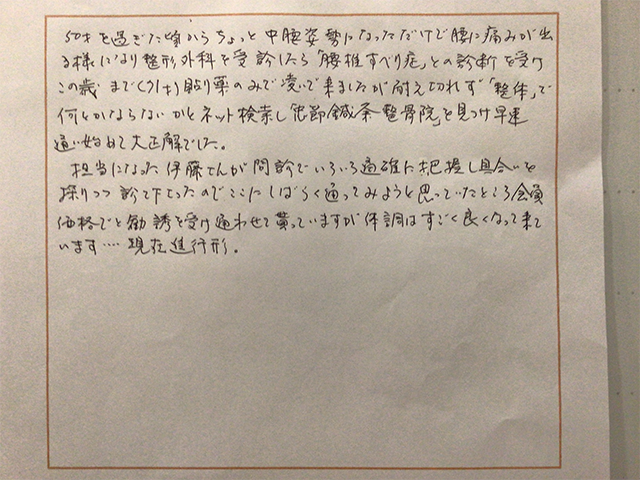 50才を過ぎた頃からちょっと中腰姿勢になっただけで腰に痛みが出
る様になり整形外科を受診したら「腰椎すべり症」との診断を受け
この歳まで(71才)貼り薬のみで凌いで来ましたが耐え切れず「整体」で
何とかならないかとネット検索し 鍼灸整骨院」を見つけ早速
通い始めて大正解でした。
担当になった伊藤さんが問診でいろいろ適確に把握し具合いを
探りつつ診て下さったのでここにしばらく通ってみようと思っていたところ会員
価格でと勧誘を受け通わせて貰っていますが体調はすごく良くなって来て
います…現在進行形.